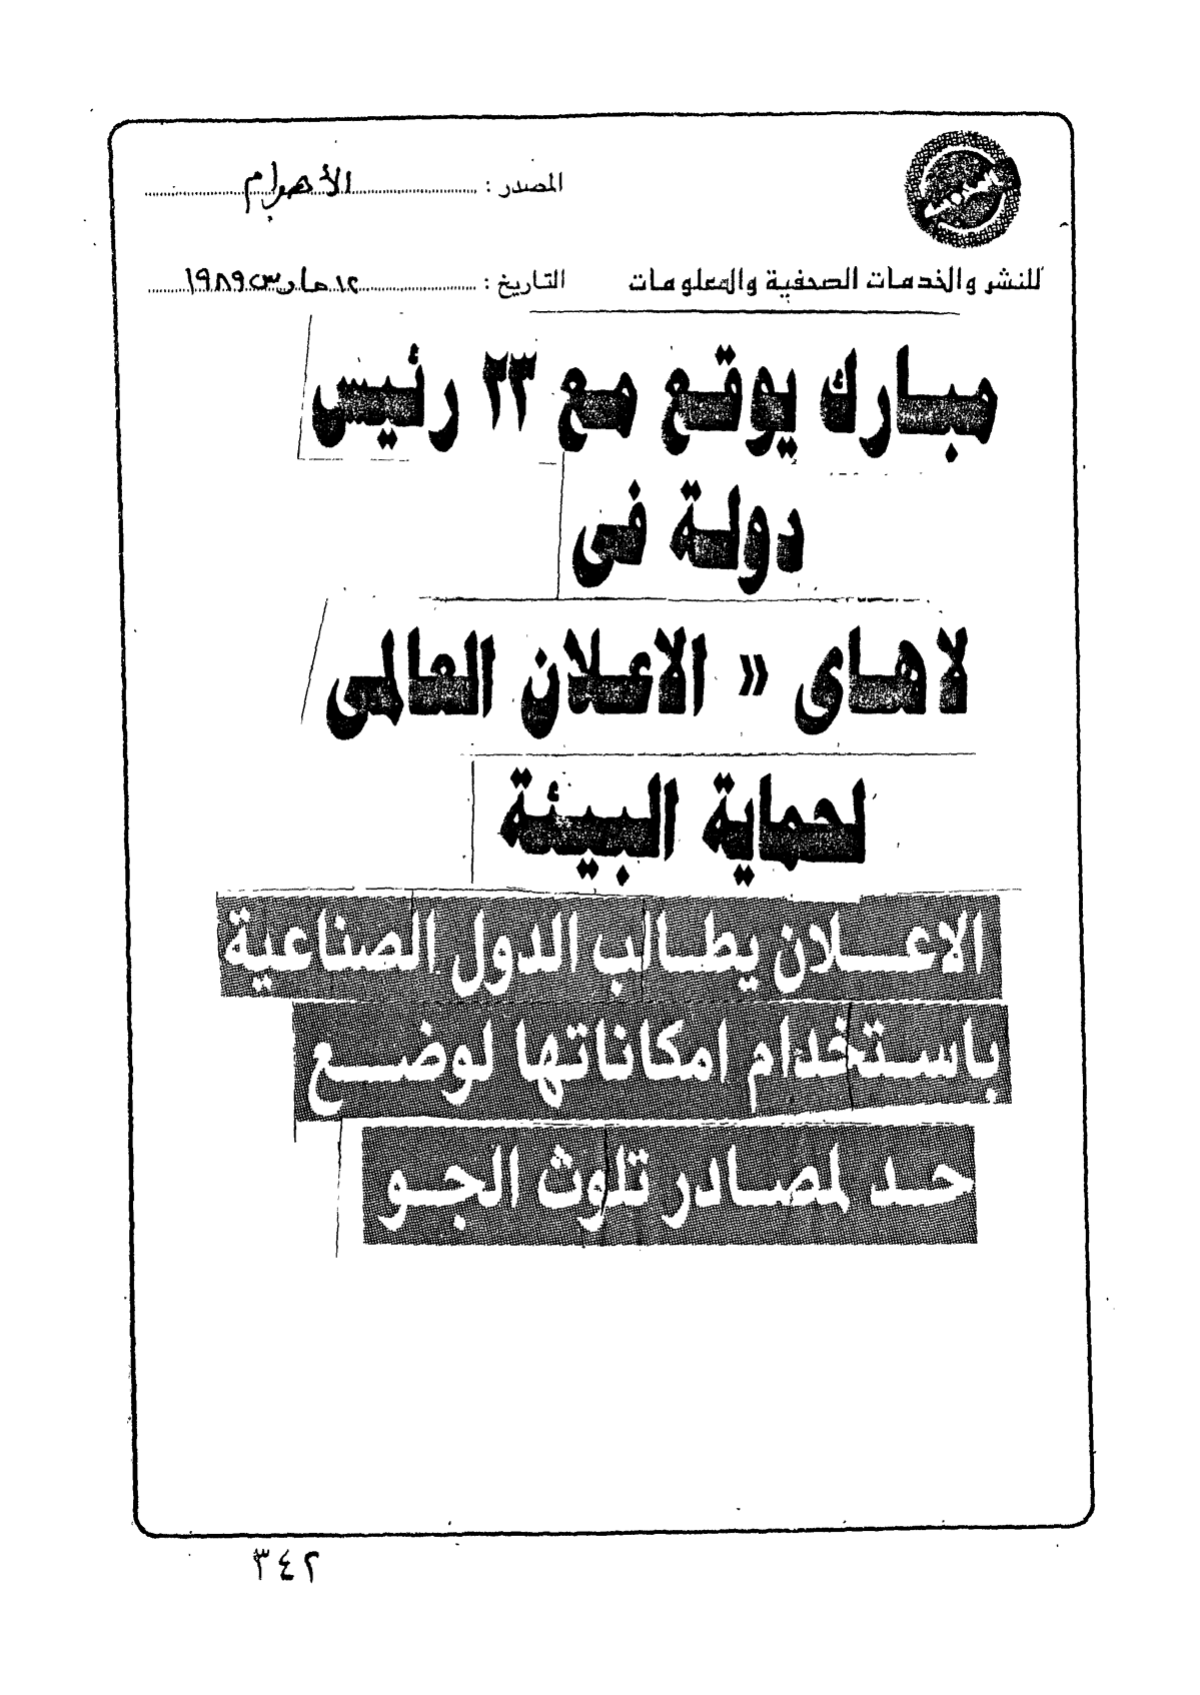 المصدر : الأهرام
للنشر والخدمات الصحفية والمعلومات
التاريخ : ١٢ مارس ١٩٨٩
مبارك يوقع مع ٢٣ رئيس
دولة فى
لاهاى « الاعلان العالمى
لحماية البيئة
الاعلان يطالب الدول الصناعية
باستخدام امكاناتها لوضع
حد لمصادر تلوث الجو
٣٤٢